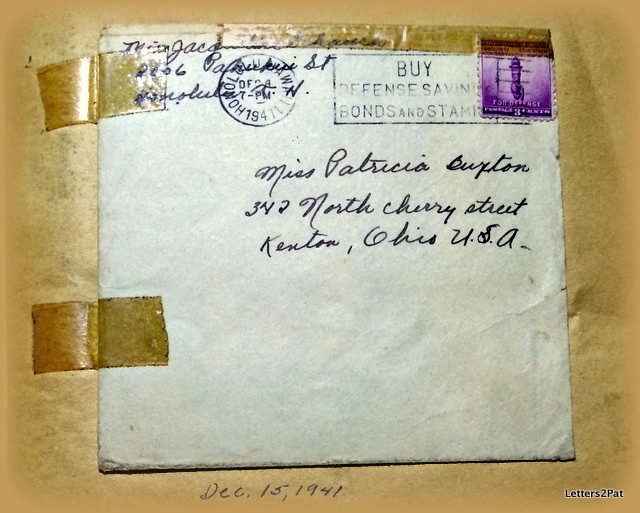 Miss
2206 St
Honolulu T. H.
HONOLULU HAWAII
DEC 8
7-PM
1941
BUY
DEFENSE SAVIN
BONDS AND STAM
FOR DEFENSE
POSTAGE 3 CENTS
Miss Patricia Buxton
342 North Cherry street
Kenton, Ohio U.S.A.
Dec. 15, 1941
Letters2Pat